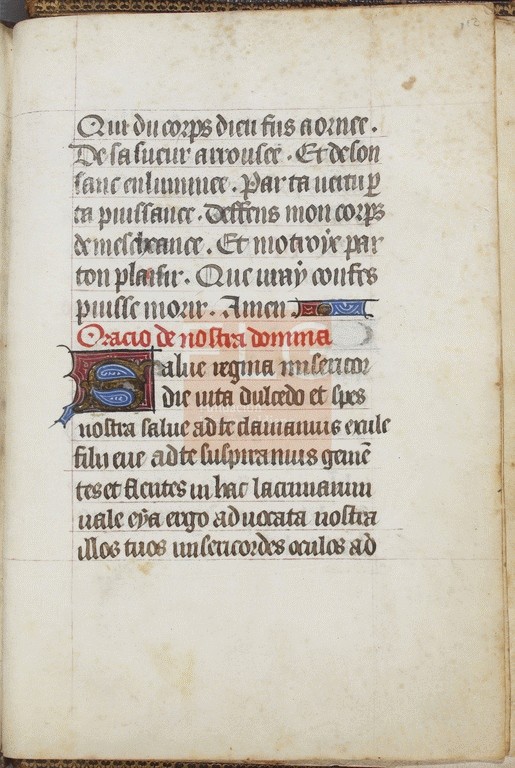 112
Qui du corps dieu fus aornee.
De sa sueur arrousee. Et de son
sanc enluminee. Par ta vertu p̲
ta puissance. Deffens mon corps
de mescheance. Et motroye par
ton plaisir. Que vray confes
puisse morir. Amen
Oracio de nostra domina
Salue regina misericor
die uita dulcedo et spes
nostra salue ad te clamamus exule
filii eue ad te suspiramus gemē
tes et flentes in hac lacrimarum
ualle eya ergo aduocata nostra
illos tuos misericordes oculos ad